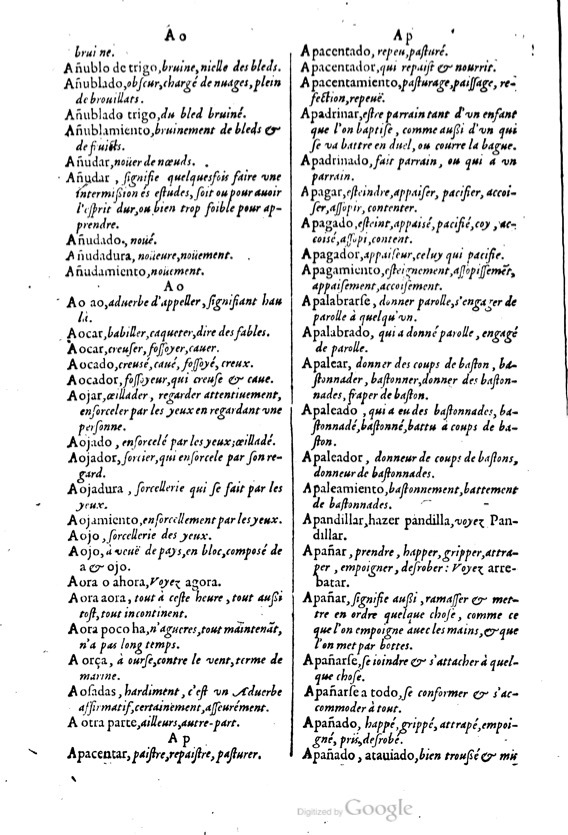 A o
bruine.
Añublo de trigo, bruine, nielle des bleds.
Añublado, obscur, chargé de nuages, plein
de brouillats.
Añublado trigo, du bled bruiné.
Añublamiento, bruinement de bleds &
de fruicts.
Añudar, noüer de nœuds.
Añudar, signifie quelquesfois faire vne
intermißiō és estudes, soit ou pour auoir
l'esprit dur, ou bien trop foible pour ap-
prendre.
Añudado, noué.
Añudadura, noüeure, noüement.
Añudamiento, noüement.
A o
Ao ao, aduerbe d'appeller, signifiant hau
là.
Aocar, babiller, caqueter, dire des fables.
Aocar, creuser, fossoyer, cauer.
Aocado, creusé, caué, fossoyé, creux.
Aocador, fossoyeur, qui creuse & caue.
Aojar, œillader, regarder attentiuement,
enforceler par les yeux en regardant vne
personne.
Aojado, enforcelé par les yeux; œilladé.
Aojador, sorcier, qui enforcele par son re-
gard.
Aojadura, sorcellerie qui se fait par les
yeux.
Aojamiento, enforcellement par les yeux.
Aojo, sorcellerie des yeux.
Aojo, à veuë de pays, en bloc, composé de
a & ojo.
Aora o ahora, Voyez agora.
Aora aora, tout à ceste heure, tout außi
tost, tout incontinent.
Aora poco ha, n'agueres, tout maintenāt,
n'a pas long temps.
A orça, à ourse, contre le vent, terme de
marine.
Aosadas, hardiment, c'est vn Aduerbe
affirmatif, certainement, asseurément.
A otra parte, ailleurs, autre-part.
A p
Apacentar, paistre, repaistre, pasturer.
A p
Apacentado, repeu, pasturé.
Apacentador, qui repaist & nourrit.
Apacentamiento, pasturage, paissage, re-
fection, repeuë.
Apadrinar, estre parrain tant d'vn enfant
que l'on baptise, comme außi d'vn qui
se va battre en duel, ou courre la bague.
Apadrinado, fait parrain, ou qui a vn
parrain.
Apagar, esteindre, appaiser, pacifier, accoi-
ser, assopir, contenter.
Apagado, esteint, appaisé, pacifié, coy, ac-
coisé, assopi, content.
Apagador, appaiseur, celuy qui pacifie.
Apagamiento, esteignement, assopissemēt,
appaisement, accoisement.
Apalabrarse, donner parolle, s'engager de
parole à quelqu'vn.
Apalabrado, qui a donné parolle, engagé
de parolle.
Apalear, donner des coups de baston, ba-
stonnader, bastonner, donner des baston-
nades, fraper de baston.
Apaleado, qui a eu des bastonnades, ba-
stonnadé, bastonné, battu à coups de ba-
ston.
Apaleador, donneur de coups de bastons,
donneur de bastonnades.
Apaleamiento, bastonnement, battement
de bastonnades.
Apandillar, hazer pandilla, voyez Pan-
dillar.
Apañar, prendre, happer, gripper, attra-
per, empoigner, desrober: Voyez arre-
batar.
Apañar, signifie außi, ramasser & met-
tre en ordre quelque chose, comme ce
que l'on empoigne auec les mains, & que
l'on met par bottes.
Apañarse, se ioindre & s'attacher à quel-
que chose.
Apañarse a todo, se conformer & s'ac-
commoder à tout.
Apañado, happé, grippé, attrapé, empoi-
gné, pris, desrobé.
Apañado, atauiado, bien troußé & mis
Digitized by Google